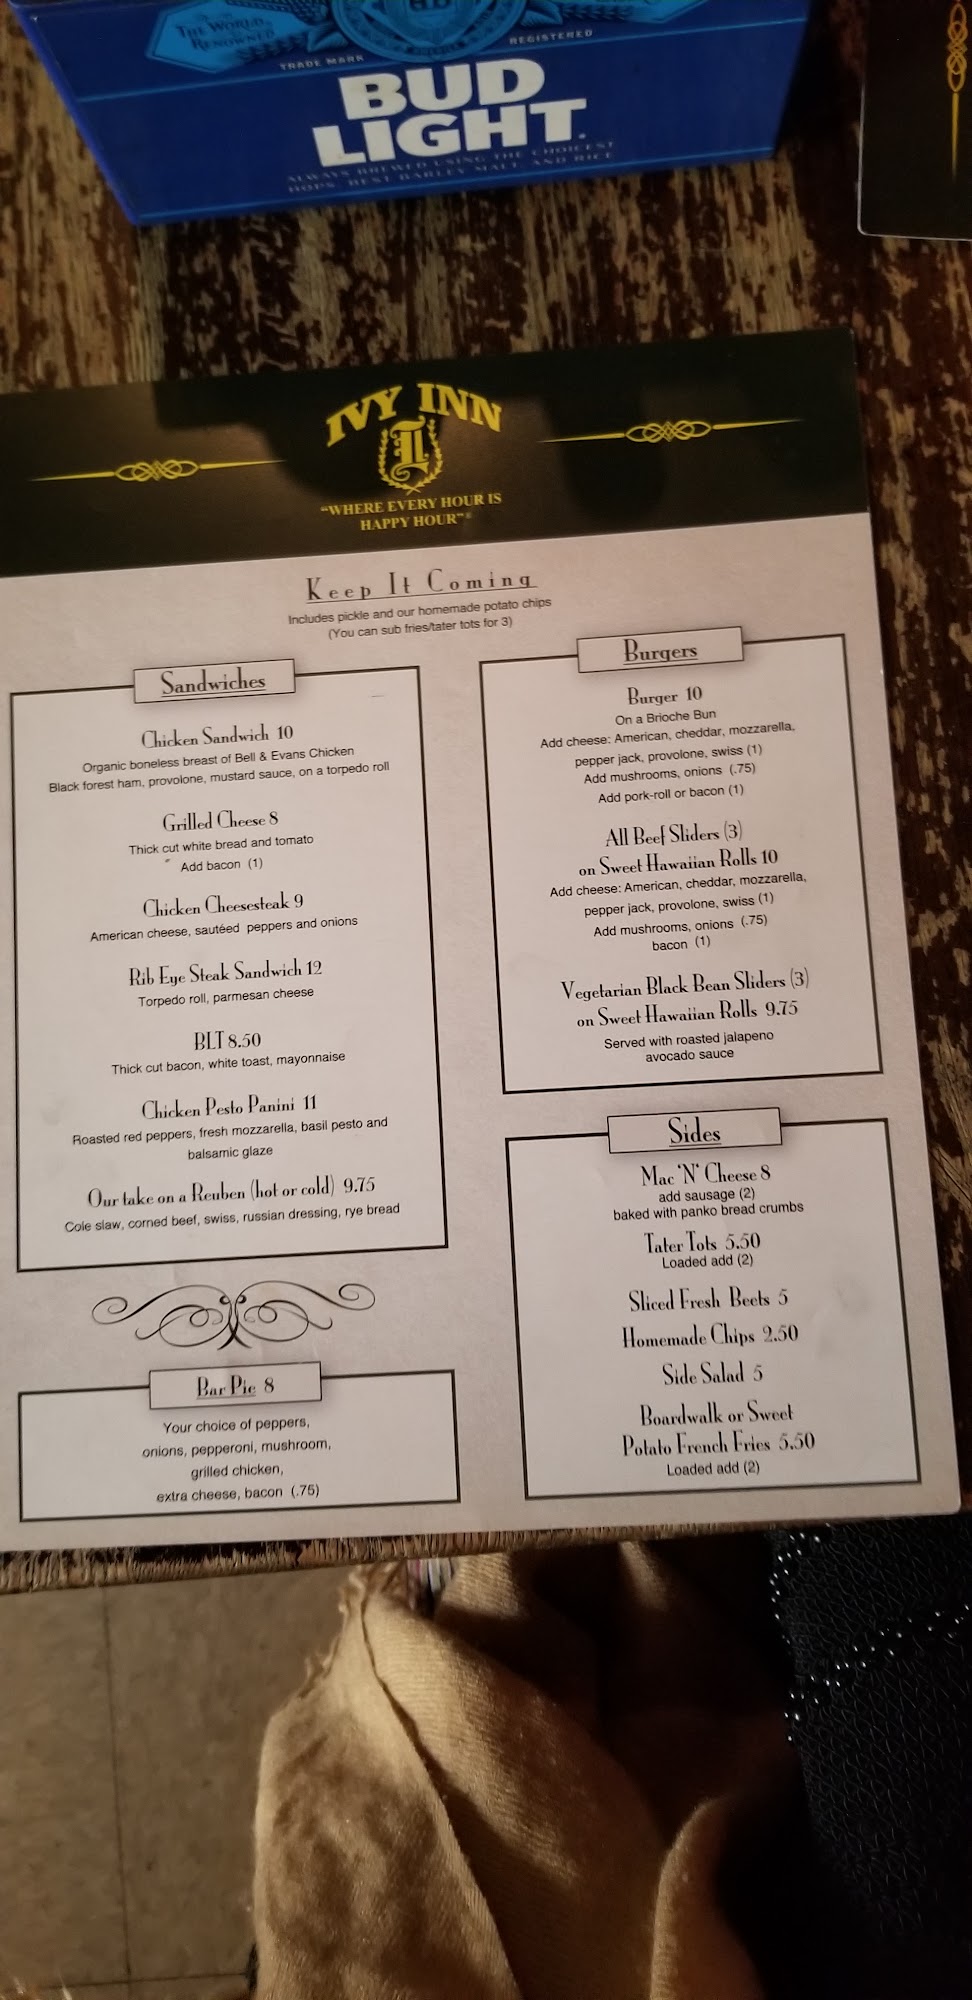 THE WORLD
RENOWNED
TRADE MARK
REGISTERED
BUD
LIGHT.
ALWAYS BREWED USING THE CHOICEST
HOPS, BEST BARLEY MALT AND RICE
IVY INN
II
"WHERE EVERY HOUR IS
HAPPY HOUR"®
Keep It Coming
Includes pickle and our homemade potato chips
(You can sub fries/tater tots for 3)
Sandwiches
Chicken Sandwich 10
Organic boneless breast of Bell & Evans Chicken
Black forest ham, provolone, mustard sauce, on a torpedo roll
Grilled Cheese 8
Thick cut white bread and tomato
Add bacon (1)
Chicken Cheesesteak 9
American cheese, sautéed peppers and onions
Rib Eye Steak Sandwich 12
Torpedo roll, parmesan cheese
BLT 8.50
Thick cut bacon, white toast, mayonnaise
Chicken Pesto Panini 11
Roasted red peppers, fresh mozzarella, basil pesto and
balsamic glaze
Our take on a Reuben (hot or cold) 9.75
Cole slaw, corned beef, swiss, russian dressing, rye bread
Bar Pie 8
Your choice of peppers,
onions, pepperoni, mushroom,
grilled chicken,
extra cheese, bacon (.75)
Burgers
Burger 10
On a Brioche Bun
Add cheese: American, cheddar, mozzarella,
pepper jack, provolone, swiss (1)
Add mushrooms, onions (.75)
Add pork-roll or bacon (1)
All Beef Sliders (3)
on Sweet Hawaiian Rolls 10
Add cheese: American, cheddar, mozzarella,
pepper jack, provolone, swiss (1)
Add mushrooms, onions (.75)
bacon (1)
Vegetarian Black Bean Sliders (3)
on Sweet Hawaiian Rolls 9.75
Served with roasted jalapeno
avocado sauce
Sides
Mac 'N' Cheese 8
add sausage (2)
baked with panko bread crumbs
Tater Tots 5.50
Loaded add (2)
Sliced Fresh Beets 5
Homemade Chips 2.50
Side Salad 5
Boardwalk or Sweet
Potato French Fries 5.50
Loaded add (2)